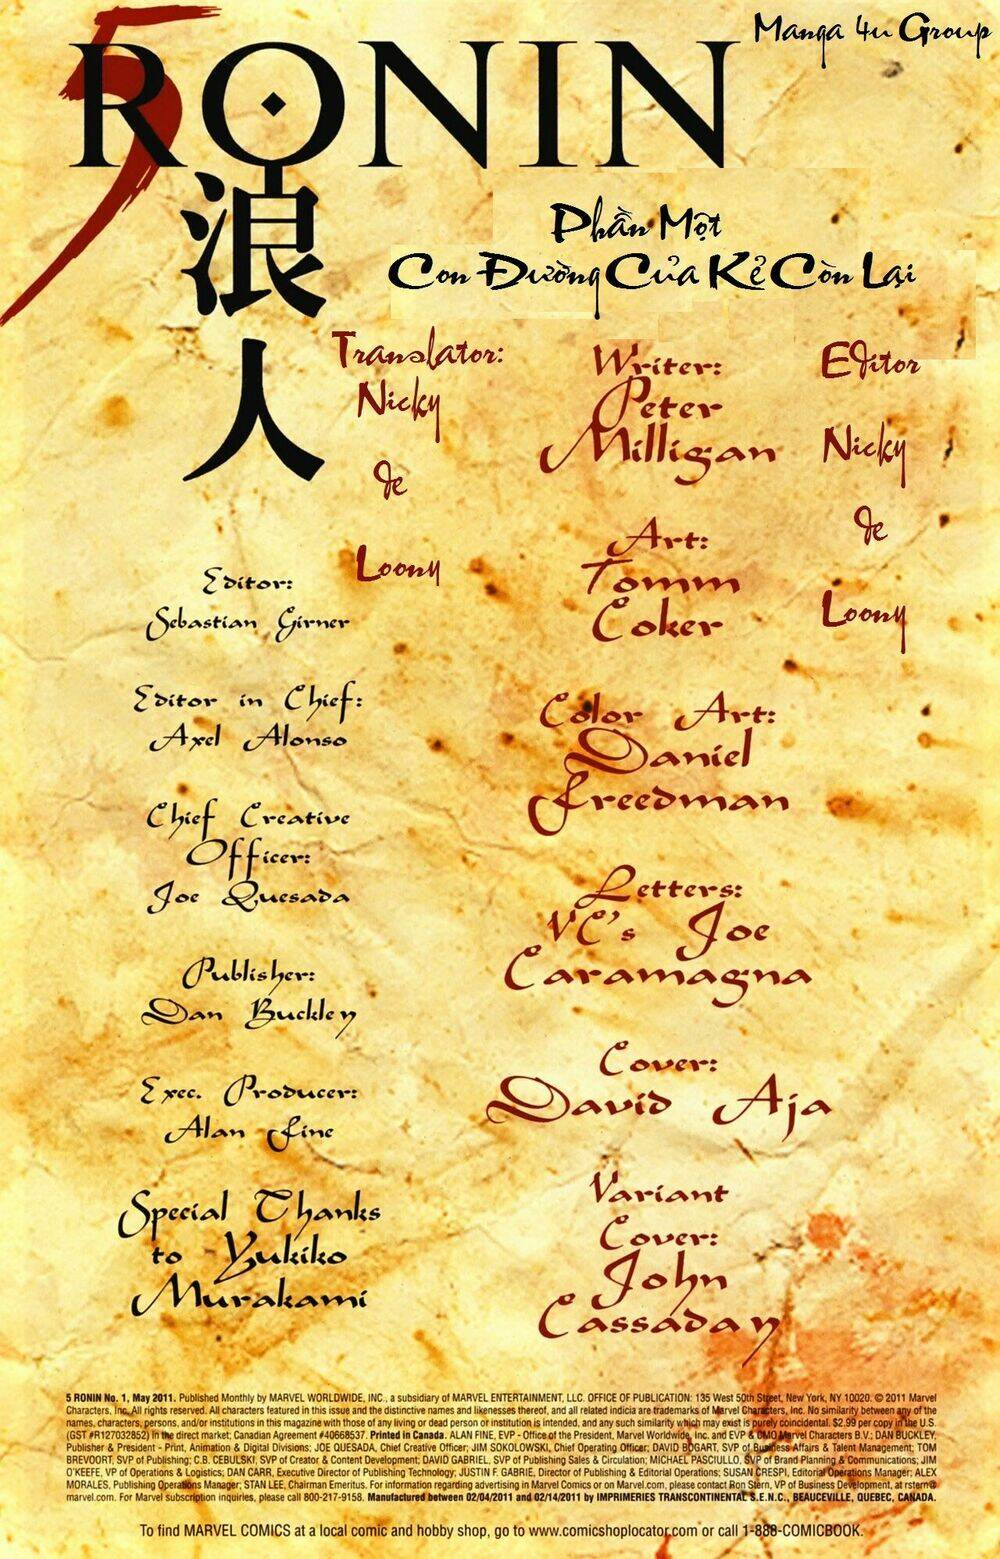 Manga 4u Group
5 RONIN
浪人
Phần Một
Con Đường Của Kẻ Còn Lại
Translator:
Nicky
de
Loony
Writer:
Peter
Milligan
Editor
Nicky
de
Loony
Art:
Tomm
Coker
Editor:
Sebastian Girner
Editor in Chief:
Axel Alonso
Color Art:
Daniel
Freedman
Chief Creative
Officer:
Joe Quesada
Letters:
VC's Joe
Caramagna
Publisher:
Dan Buckley
Cover:
David Aja
Exec. Producer:
Alan Fine
Variant
Cover:
John
Cassaday
Special Thanks
to Yukiko
Murakami
5 RONIN No. 1, May 2011. Published Monthly by MARVEL WORLDWIDE, INC., a subsidiary of MARVEL ENTERTAINMENT, LLC. OFFICE OF PUBLICATION: 135 West 50th Street, New York, NY 10020. © 2011 Marvel
Characters, Inc. All rights reserved. All characters featured in this issue and the distinctive names and likenesses thereof, and all related indicia are trademarks of Marvel Characters, Inc. No similarity between any of the
names, characters, persons, and/or institutions in this magazine with those of any living or dead person or institution is intended, and any such similarity which may exist is purely coincidental. $2.99 per copy in the U.S.
(GST #R127032852) in the direct market; Canadian Agreement #40668537. Printed in Canada. ALAN FINE, EVP - Office of the President, Marvel Worldwide, Inc. and EVP & CMO Marvel Characters B.V.; DAN BUCKLEY,
Publisher & President - Print, Animation & Digital Divisions; JOE QUESADA, Chief Creative Officer; JIM SOKOLOWSKI, Chief Operating Officer; DAVID BOGART, SVP of Business Affairs & Talent Management; TOM
BREVOORT, SVP of Publishing; C.B. CEBULSKI, SVP of Creator & Content Development; DAVID GABRIEL, SVP of Publishing Sales & Circulation; MICHAEL PASCIULLO, SVP of Brand Planning & Communications; JIM
O'KEEFE, VP of Operations & Logistics; DAN CARR, Executive Director of Publishing Technology; JUSTIN F. GABRIE, Director of Publishing & Editorial Operations; SUSAN CRESPI, Editorial Operations Manager; ALEX
MORALES, Publishing Operations Manager; STAN LEE, Chairman Emeritus. For information regarding advertising in Marvel Comics or on Marvel.com, please contact Ron Stern, VP of Business Development, at rstern@
marvel.com. For Marvel subscription inquiries, please call 800-217-9158. Manufactured between 02/04/2011 and 02/14/2011 by IMPRIMERIES TRANSCONTINENTAL S.E.N.C., BEAUCEVILLE, QUEBEC, CANADA.
To find MARVEL COMICS at a local comic and hobby shop, go to www.comicshoplocator.com or call 1-888-COMICBOOK.